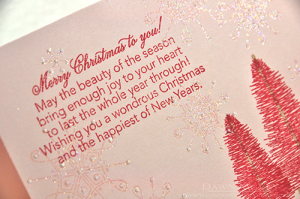 Merry Christmas to you!
May the beauty of the season
bring enough joy to your heart
to last the whole year through!
Wishing you a wondrous Christmas
and the happiest of New Years.